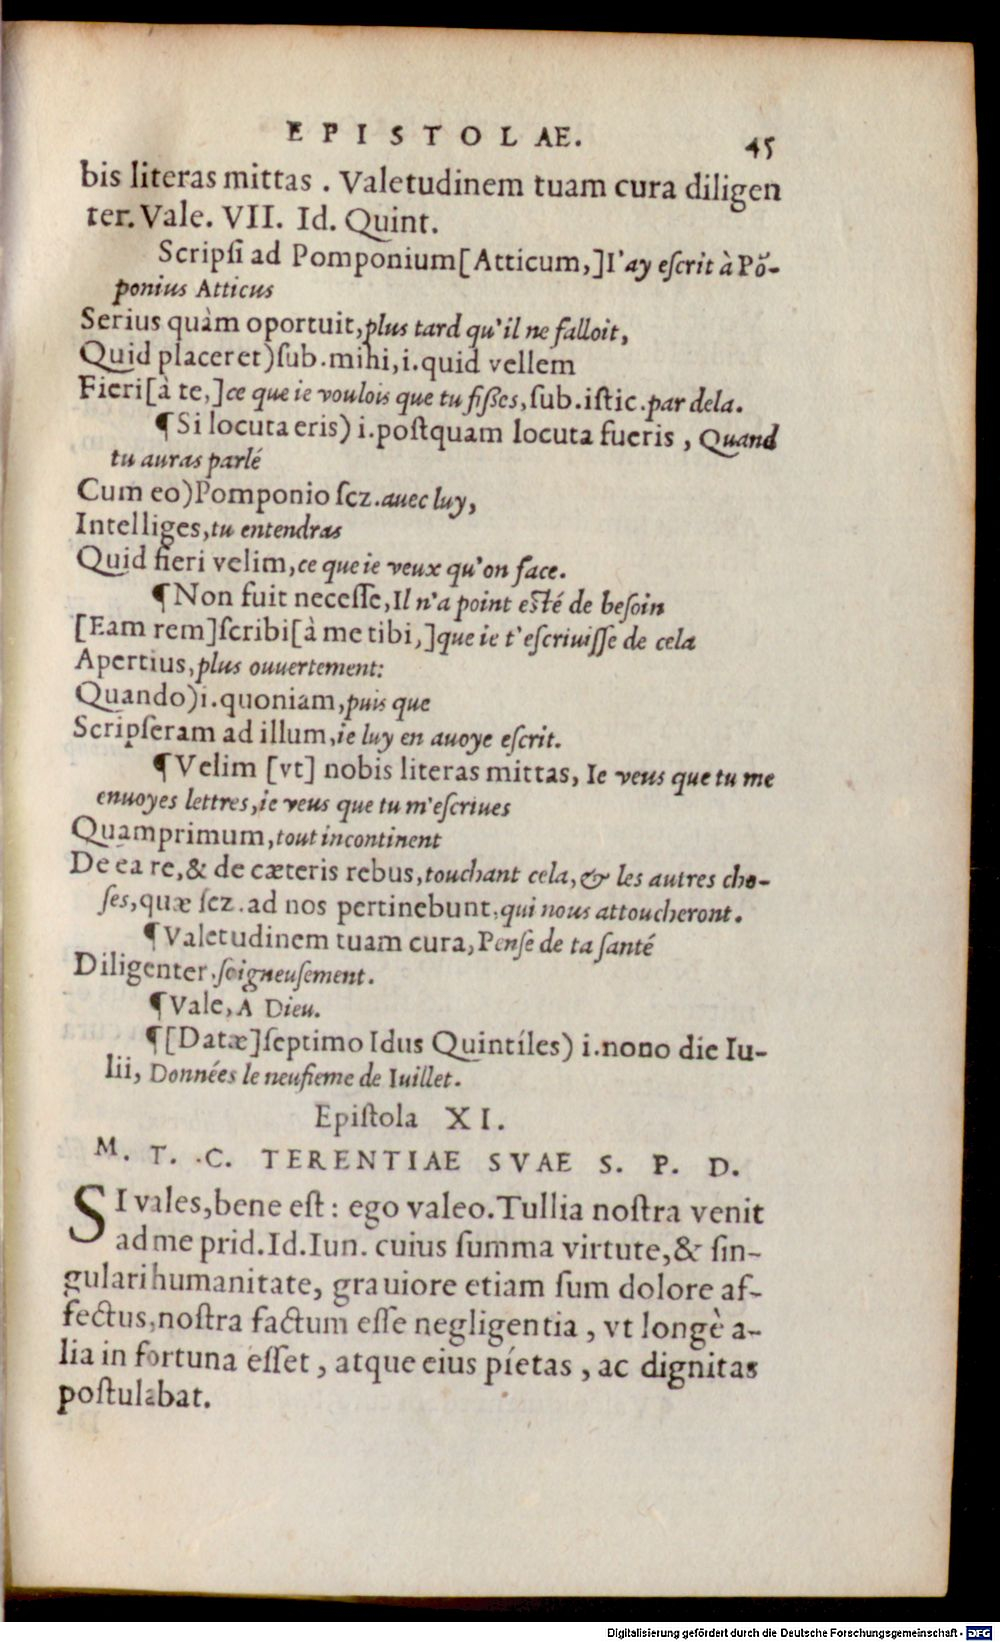 EPISTOLAE. 45
bis literas mittas . Valetudinem tuam cura diligen
ter. Vale. VII. Id. Quint.
Scripsi ad Pomponium[Atticum,]I'ay escrit à Põ-
ponius Atticus
Serius quàm oportuit, plus tard qu'il ne falloit,
Quid placeret)sub.mihi, i.quid vellem
Fieri[à te,]ce que ie voulois que tu fisses, sub.istic.par dela.
¶Si locuta eris) i.postquam locuta fueris , Quand
tu auras parlé
Cum eo)Pomponio scz.auec luy,
Intelliges, tu entendras
Quid fieri velim, ce que ie veux qu'on face.
¶Non fuit necesse, Il n'a point esté de besoin
[Eam rem]scribi[à me tibi,]que ie t'escriuisse de cela
Apertius, plus ouuertement:
Quando)i.quoniam, puis que
Scripseram ad illum, ie luy en auoye escrit.
¶Velim [vt] nobis literas mittas, Ie veus que tu me
enuoyes lettres, ie veus que tu m'escriues
Quamprimum, tout incontinent
De ea re, & de cæteris rebus, touchant cela, & les autres cho-
ses, quæ scz.ad nos pertinebunt, qui nous attoucheront.
¶Valetudinem tuam cura, Pense de ta santé
Diligenter, soigneusement.
¶Vale, A Dieu.
¶[Datæ]septimo Idus Quintíles) i.nono die Iu-
lii, Données le neufieme de Iuillet.
Epistola XI.
M. T. C. TERENTIAE SVAE S. P. D.
SI vales, bene est: ego valeo. Tullia nostra venit
ad me prid. Id. Iun. cuius summa virtute, & sin-
gulari humanitate, grauiore etiam sum dolore af-
fectus, nostra factum esse negligentia , vt longè a-
lia in fortuna esset , atque eius píetas , ac dignitas
postulabat.
Digitalisierung gefördert durch die Deutsche Forschungsgemeinschaft - DFG